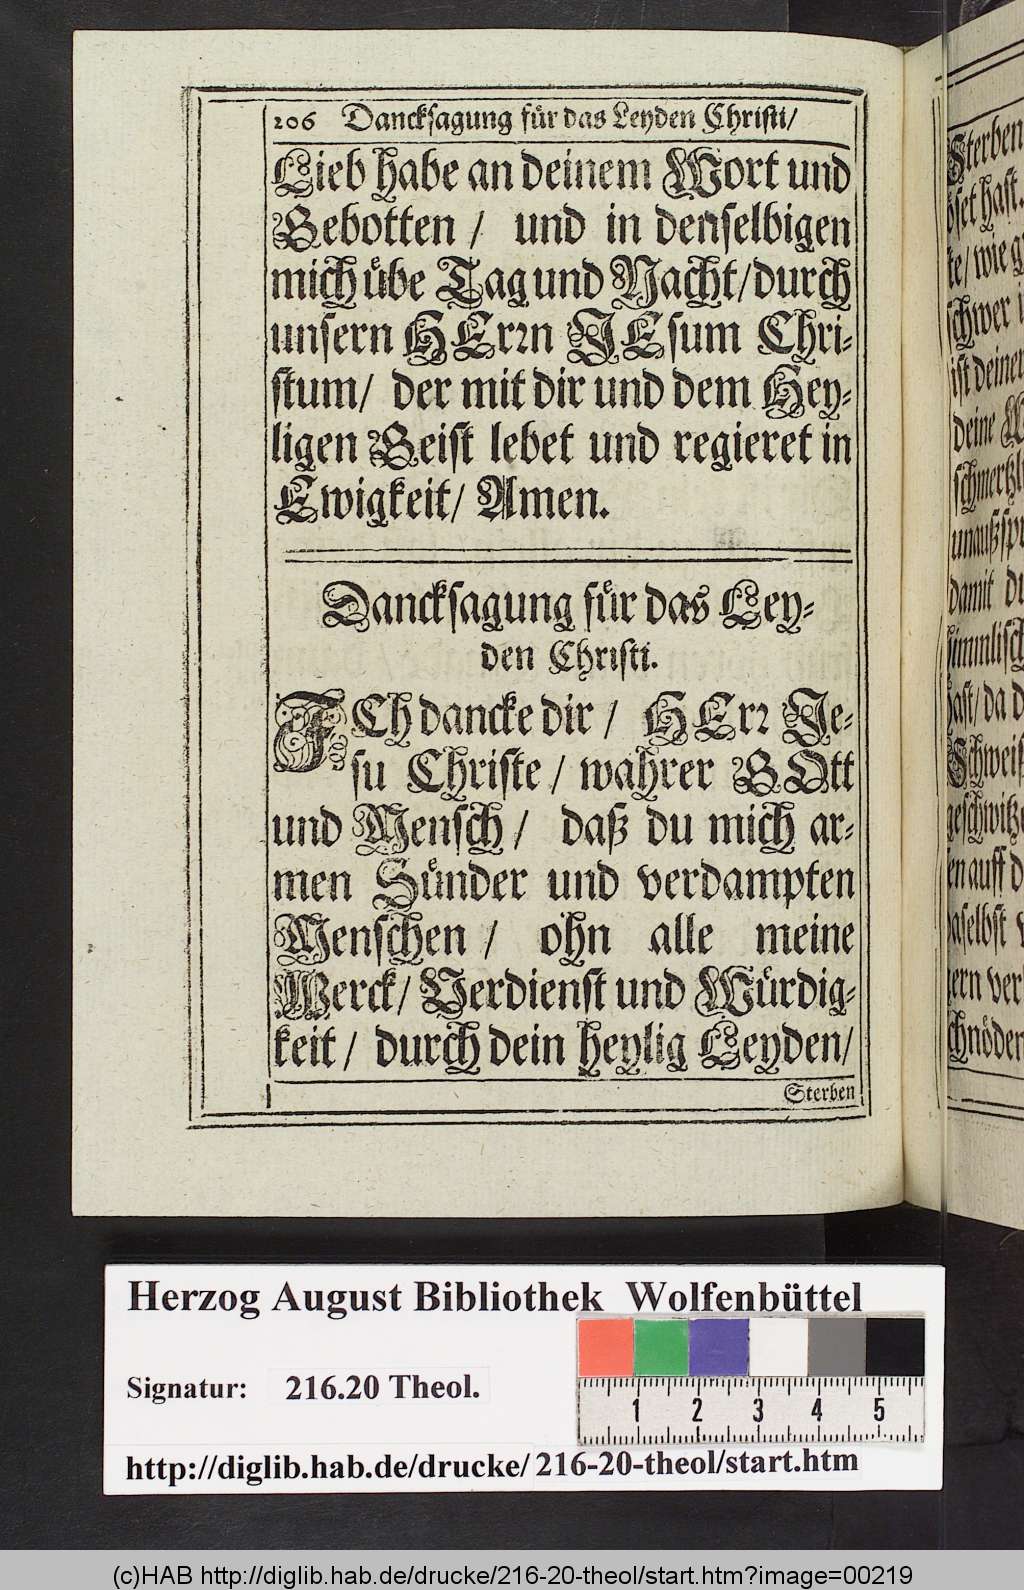 206 Dancksagung für das Leyden Christi/
Lieb habe an deinem Wort und
Gebotten / und in denselbigen
mich übe Tag und Nacht/durch
unsern HErrn JEsum Chri-
stum/ der mit dir und dem Hey-
ligen Geist lebet und regieret in
Ewigkeit/ Amen.
Dancksagung für das Ley-
den Christi.
ICh dancke dir / HErr Je-
su Christe / wahrer GOtt
und Mensch / daß du mich ar-
men Sünder und verdampten
Menschen / ohn alle meine
Werck/ Verdienst und Würdig-
keit / durch dein heylig Leyden/
Sterben
Sterben
öset hast.
te/ wie g
schwer i
ist deiner
deine W
schmertzl
unaußspr
damit du
himmlisch
hast/ da d
Schweis
geschwitz
en auff d
daselbst v
gern ver
schnöden
Herzog August Bibliothek Wolfenbüttel
Signatur: 216.20 Theol.
1 2 3 4 5
http://diglib.hab.de/drucke/216-20-theol/start.htm
(c)HAB http://diglib.hab.de/drucke/216-20-theol/start.htm?image=00219